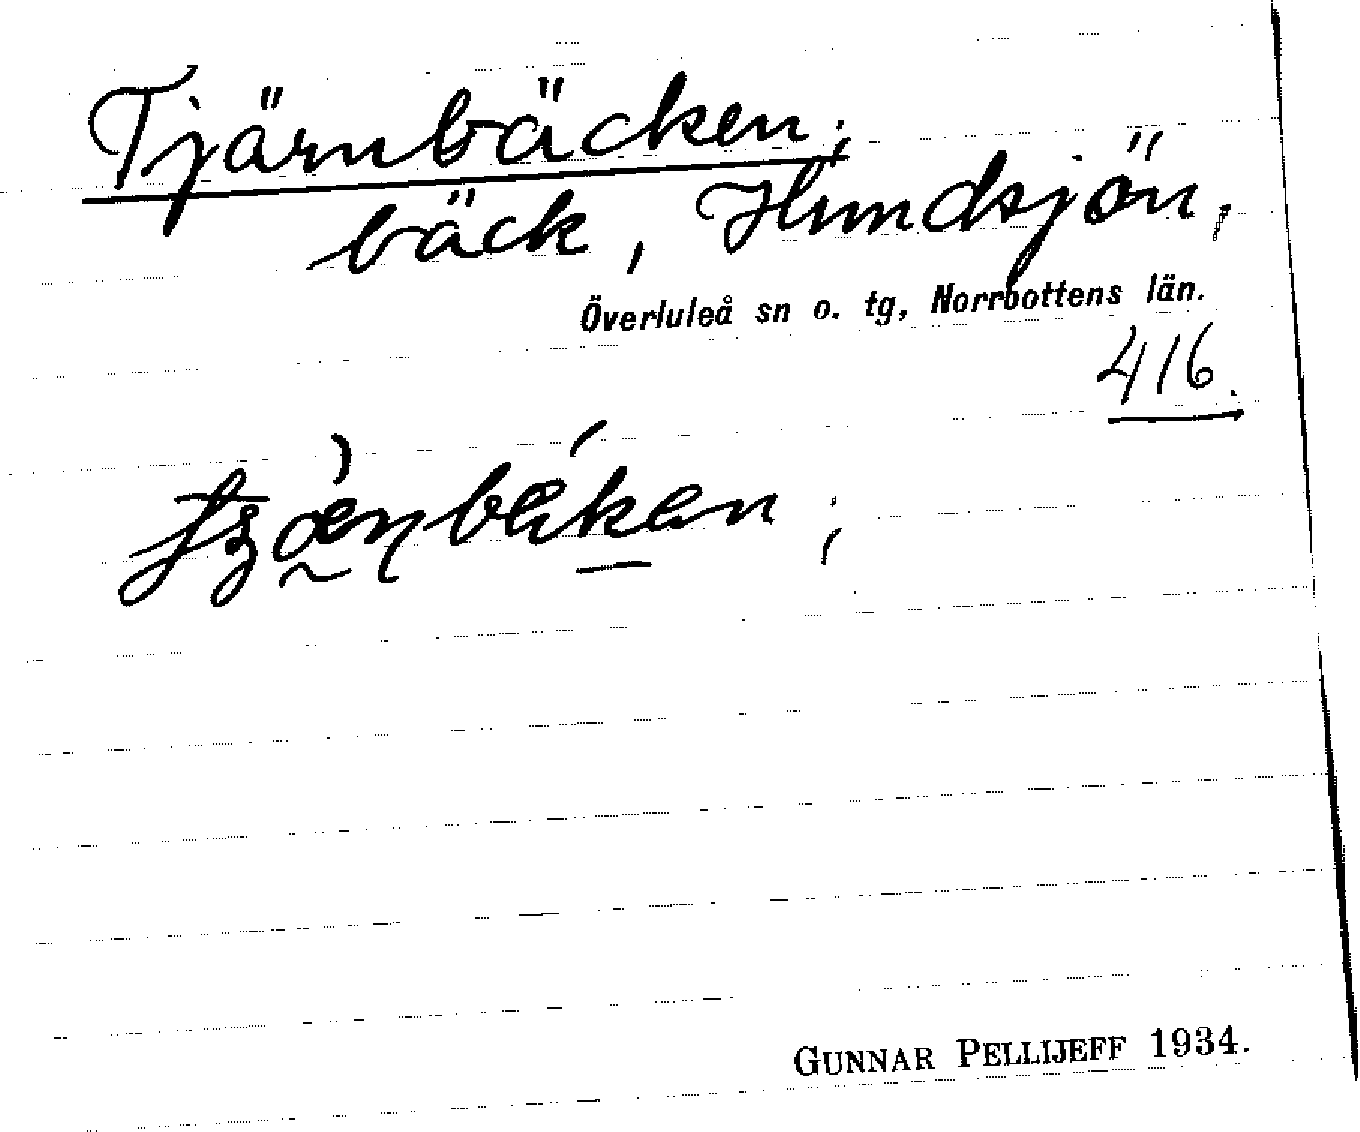 Tjärnbäcken;
bäck, Hundsjön,
Överluleå sn o. tg, Norrbottens län.
416.
GUNNAR PELLIJEFF 1934.